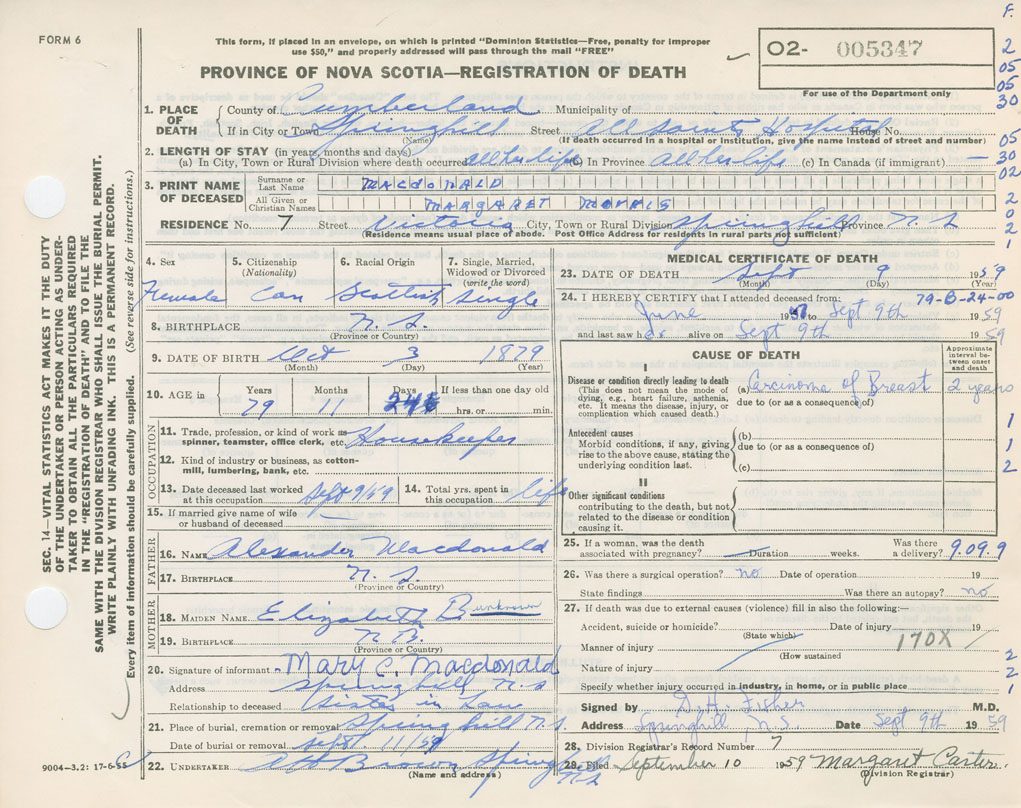 FORM 6
This form, if placed in an envelope, on which is printed "Dominion Statistics—Free, penalty for improper
use $50," and properly addressed will pass through the mail "FREE"
PROVINCE OF NOVA SCOTIA—REGISTRATION OF DEATH
02- 005347
For use of the Department only
F.
2
05
05
30
05
30
02
2
0
2
1
SEC. 14—VITAL STATISTICS ACT MAKES IT THE DUTY
OF THE UNDERTAKER OR PERSON ACTING AS UNDER-
TAKER TO OBTAIN ALL THE PARTICULARS REQUIRED
IN THE "REGISTRATION OF DEATH" AND FILE THE
SAME WITH THE DIVISION REGISTRAR WHO SHALL ISSUE THE BURIAL PERMIT.
WRITE PLAINLY WITH UNFADING INK. THIS IS A PERMANENT RECORD.
Every item of information should be carefully supplied. (See reverse side for instructions.)
1. PLACE OF DEATH
County of Cumberland Municipality of
If in City or Town Springhill Street All Saints Hospital House No.
(Name) (If death occurred in a hospital or institution, give the name instead of street and number)
2. LENGTH OF STAY (in years, months and days)
(a) In City, Town or Rural Division where death occurred all her life (b) In Province All her life (c) In Canada (if immigrant) —
3. PRINT NAME OF DECEASED
Surname or Last Name MACDONALD
All Given or Christian Names MARGARET MORRIS
RESIDENCE No. 7 Street Victoria City, Town or Rural Division Springhill Province N.S
(Residence means usual place of abode. Post Office Address for residents in rural parts not sufficient)
4. Sex
Female
5. Citizenship
(Nationality)
Can
6. Racial Origin
Scottish
7. Single, Married,
Widowed or Divorced
(write the word)
Single
8. BIRTHPLACE N.S.
(Province or Country)
9. DATE OF BIRTH Oct 3 1879
(Month) (Day) (Year)
10. AGE in
Years Months Days If less than one day old
79 11 hrs. or min.
OCCUPATION
11. Trade, profession, or kind of work as
spinner, teamster, office clerk, etc. Housekeeper
12. Kind of industry or business, as cotton-
mill, lumbering, bank, etc.
13. Date deceased last worked
at this occupation Sept 9/59
14. Total yrs. spent in
this occupation life
15. If married give name of wife
or husband of deceased —
FATHER
16. NAME Alexander Macdonald
17. BIRTHPLACE N.S.
(Province or Country)
MOTHER
18. MAIDEN NAME Elizabeth B unknown
19. BIRTHPLACE N.B.
(Province or Country)
20. Signature of informant Mary C. Macdonald
Address Springhill N.S
Relationship to deceased Sister in Law
21. Place of burial, cremation or removal Springhill N.S.
Date of burial or removal Sept. 11/59
22. UNDERTAKER Brown Springhill
N.S
(Name and address)
9004-3.2: 17-6-55
MEDICAL CERTIFICATE OF DEATH
23. DATE OF DEATH Sept 9 1959
(Month) (Day) (Year)
24. I HEREBY CERTIFY that I attended deceased from: 79-B-24-00
June 19 to Sept 9th 1959
and last saw h er alive on Sept 9th 1959
CAUSE OF DEATH
Approximate
interval be-
tween onset
and death
I
Disease or condition directly leading to death
(This does not mean the mode of
dying, e.g., heart failure, asthenia,
etc. It means the disease, injury, or
complication which caused death.)
(a) Carcinoma of Breast 2 years
due to (or as a consequence of)
Antecedent causes
Morbid conditions, if any, giving
rise to the above cause, stating the
underlying condition last.
(b)
due to (or as a consequence of)
(c)
II
Other significant conditions
contributing to the death, but not
related to the disease or condition
causing it.
1
1
2
25. If a woman, was the death
associated with pregnancy? — Duration weeks. Was there
a delivery? 9.09.9
26. Was there a surgical operation? no Date of operation 19
State findings Was there an autopsy? no
27. If death was due to external causes (violence) fill in also the following:—
Accident, suicide or homicide? Date of injury 19
(State which)
Manner of injury 170X
(How sustained
Nature of injury
Specify whether injury occurred in industry, in home, or in public place
2
2
1
Signed by D.H. Fisher M.D.
Address Springhill N.S. Date Sept 9th 1959
28. Division Registrar's Record Number 7
29. Filed September 10 1959 Margaret Carter
(Division Registrar)